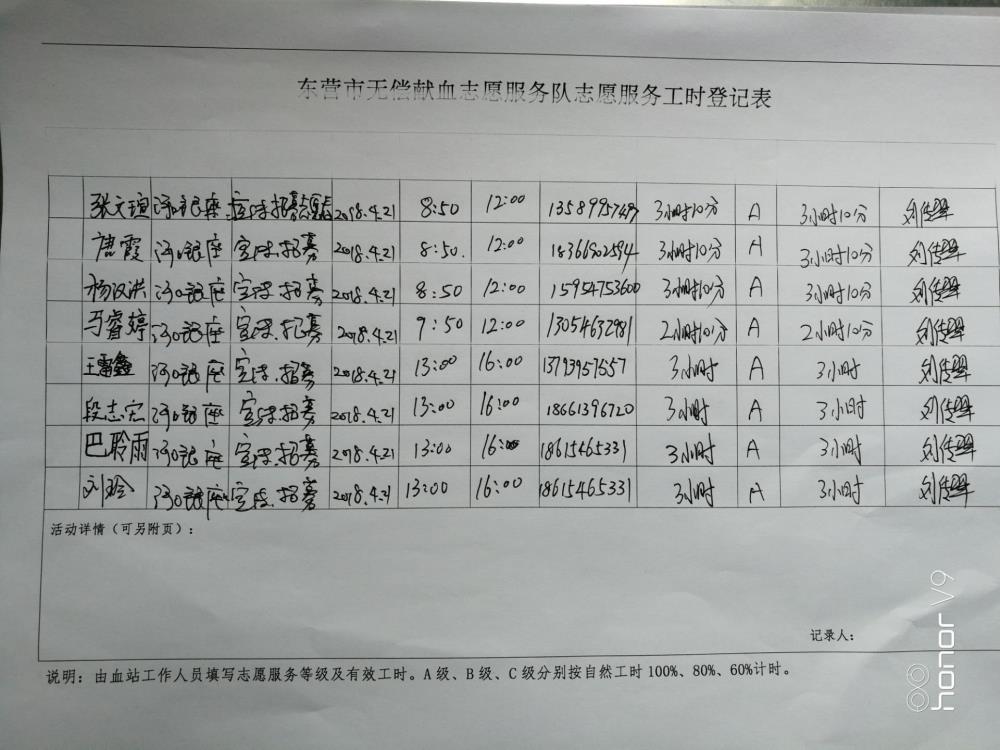 东营市无偿献血志愿服务队志愿服务工时登记表
张文瑄 河口银座 宣传.招募 2018.4.21 8:50 12:00 3小时10分 A 3小时10分
唐霞 河口银座 宣传.招募 2018.4.21 8:50. 12:00 18366902594 3小时10分 A 3小时10分
杨汉洪 河口银座 宣传.招募 2018.4.21 8:50 12:00 15954753600 3小时10分 A 3小时10分
马睿婷 河口银座 宣传.招募 2018.4.21 9:50 12:00 13054632981 2小时10分 A 2小时10分
王 鑫 河口银座 宣传.招募 2018.4.21 13:00 16:00 13793957557 3小时 A 3小时
段志宏 河口银座 宣传.招募 2018.4.21 13:00 16:00 18661396720 3小时 A 3小时
巴聆雨 河口银座 宣传.招募 2018.4.21 13:00 16:00 18615465331 3小时 A 3小时
刘玲 河口银座 宣传.招募 2018.4.21 13:00 16:00 18615465331 3小时 A 3小时
活动详情（可另附页）：
记录人：
说明：由血站工作人员填写志愿服务等级及有效工时。A级、B级、C级分别按自然工时100%、80%、60%计时。
honor V9